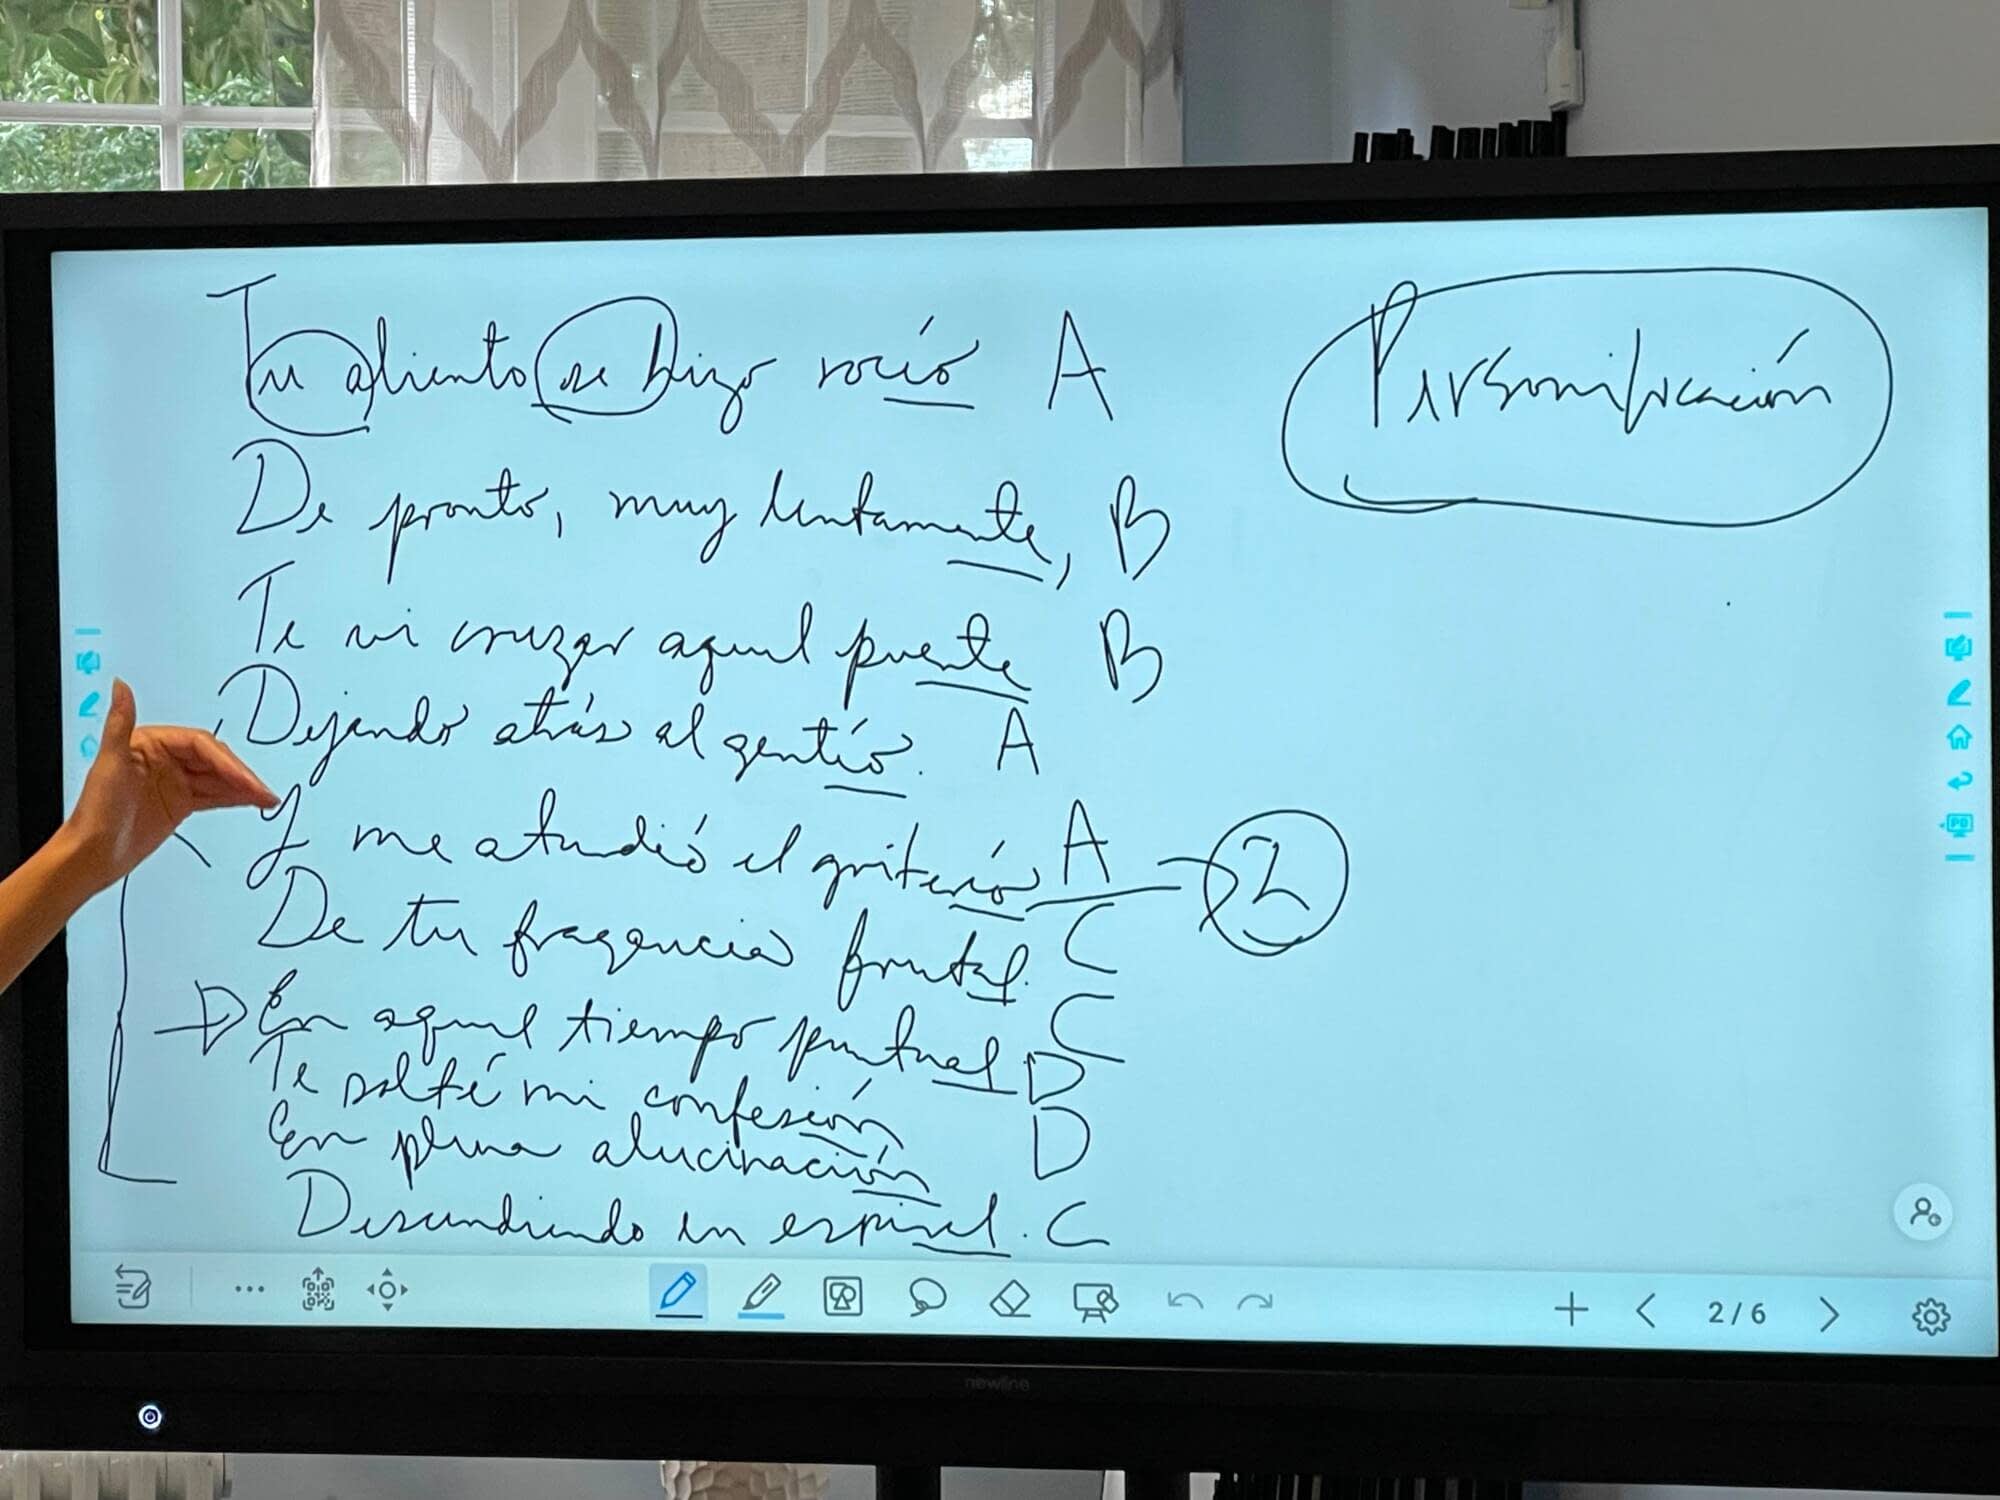 Tu aliento se hizo rocío A
Personificación
De pronto, muy lentamente, B
Te vi cruzar aquel puente B
Dejando atrás al gentío. A
Y me aturdió el griterío A → 2
De tu fragancia frutal. C
→ En aquel tiempo puntual C
Te solté mi confesión D
En plena alucinación D
Descendiendo en espiral. C
2/6
newline